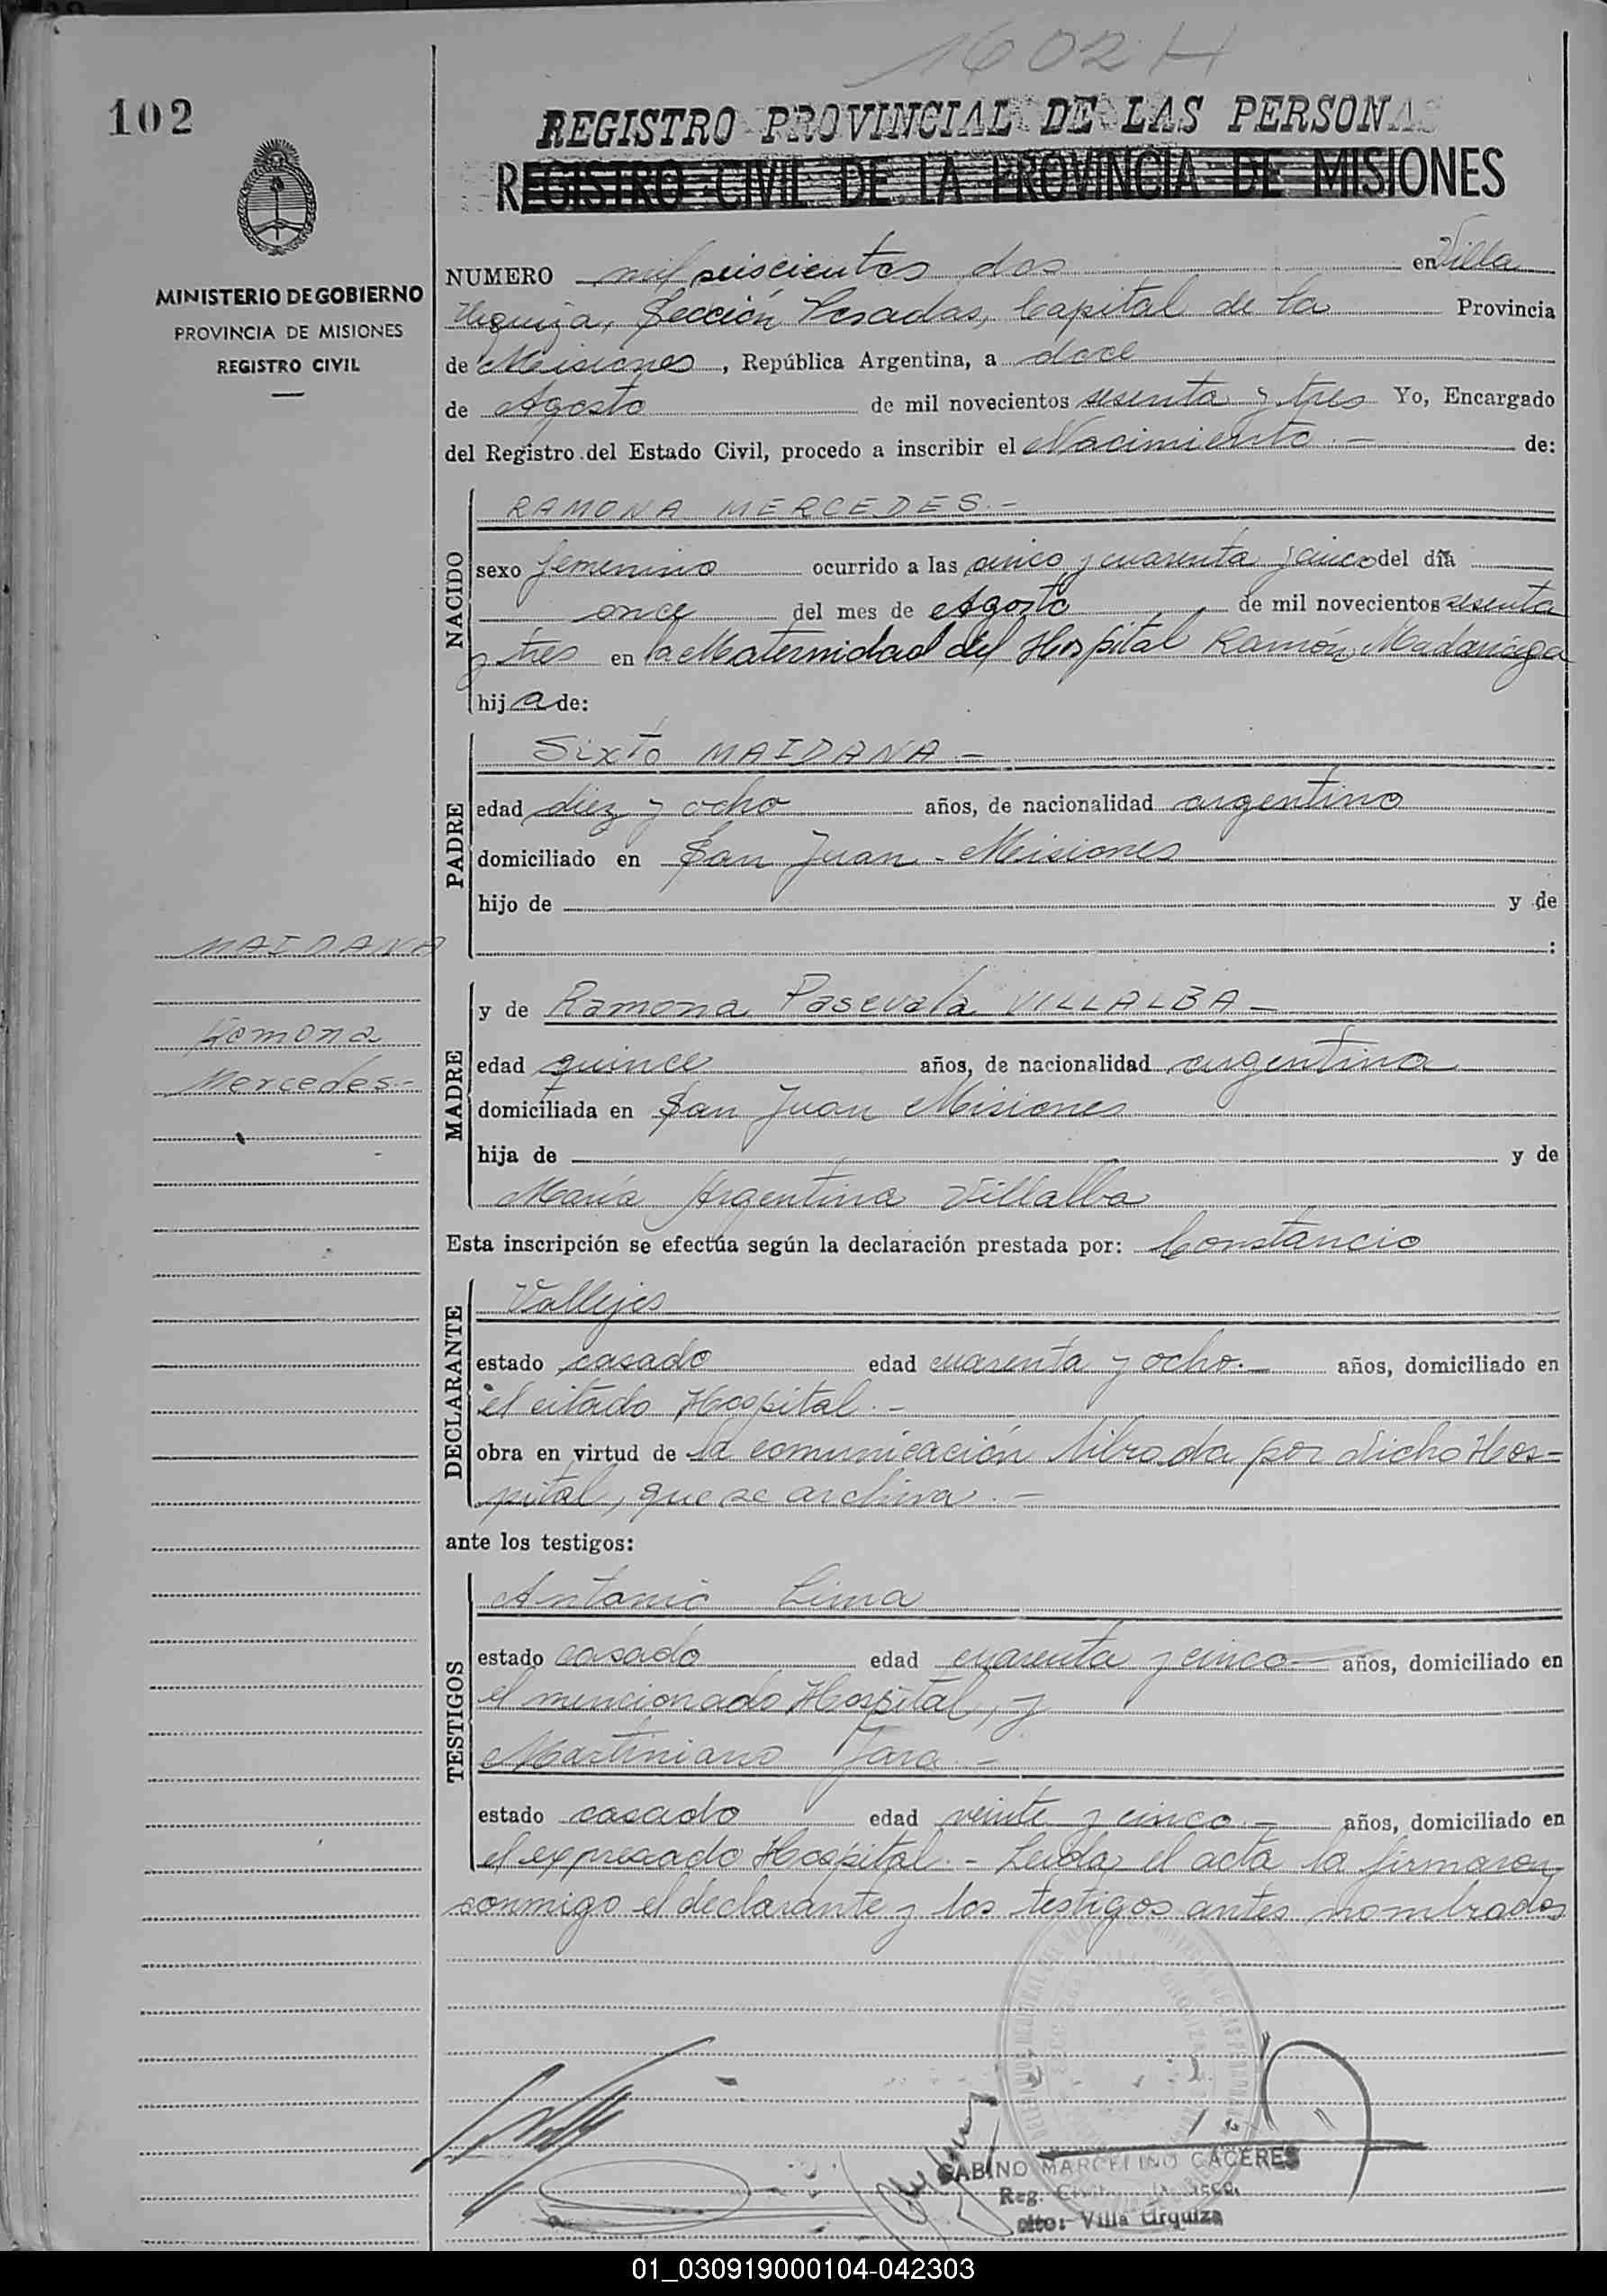 1602 H
102
REGISTRO PROVINCIAL DE LAS PERSONAS
REGISTRO CIVIL DE LA PROVINCIA DE MISIONES
MINISTERIO DE GOBIERNO
PROVINCIA DE MISIONES
REGISTRO CIVIL
NUMERO mil seiscientos dos en Villa
Urquiza, Sección Posadas, Capital de la Provincia
de Misiones, República Argentina, a doce
de Agosto de mil novecientos sesenta y tres Yo, Encargado
del Registro del Estado Civil, procedo a inscribir el Nacimiento.- de:
NACIDO
RAMONA MERCEDES.-
sexo femenino ocurrido a las cinco y cuarenta y cinco del día
once del mes de Agosto de mil novecientos sesenta
y tres en la Maternidad del Hospital Ramón Madariaga
hija de:
PADRE
Sixto MAIDANA -
edad diez y ocho años, de nacionalidad argentino
domiciliado en San Juan - Misiones
hijo de y de
:
MAIDANA
Ramona
Mercedes.-
MADRE
y de Ramona Pascuala VILLALBA -
edad quince años, de nacionalidad argentina
domiciliada en San Juan Misiones
hija de y de
María Argentina Villalba
Esta inscripción se efectúa según la declaración prestada por: Constancio
DECLARANTE
Vallejos
estado casado edad cuarenta y ocho.- años, domiciliado en
el citado Hospital.-
obra en virtud de la comunicación librada por dicho Hos=
pital, que se archiva.-
ante los testigos:
TESTIGOS
Antonio Lima
estado casado edad cuarenta y cinco años, domiciliado en
el mencionado Hospital, y
Martiniano Jara.-
estado casado edad veinte y cinco.- años, domiciliado en
el expresado Hospital.- Leída el acta la firmaron
conmigo el declarante y los testigos antes nombrados
GABINO MARCELINO CACERES
Reg.
Villa Urquiza
01_030919000104-042303